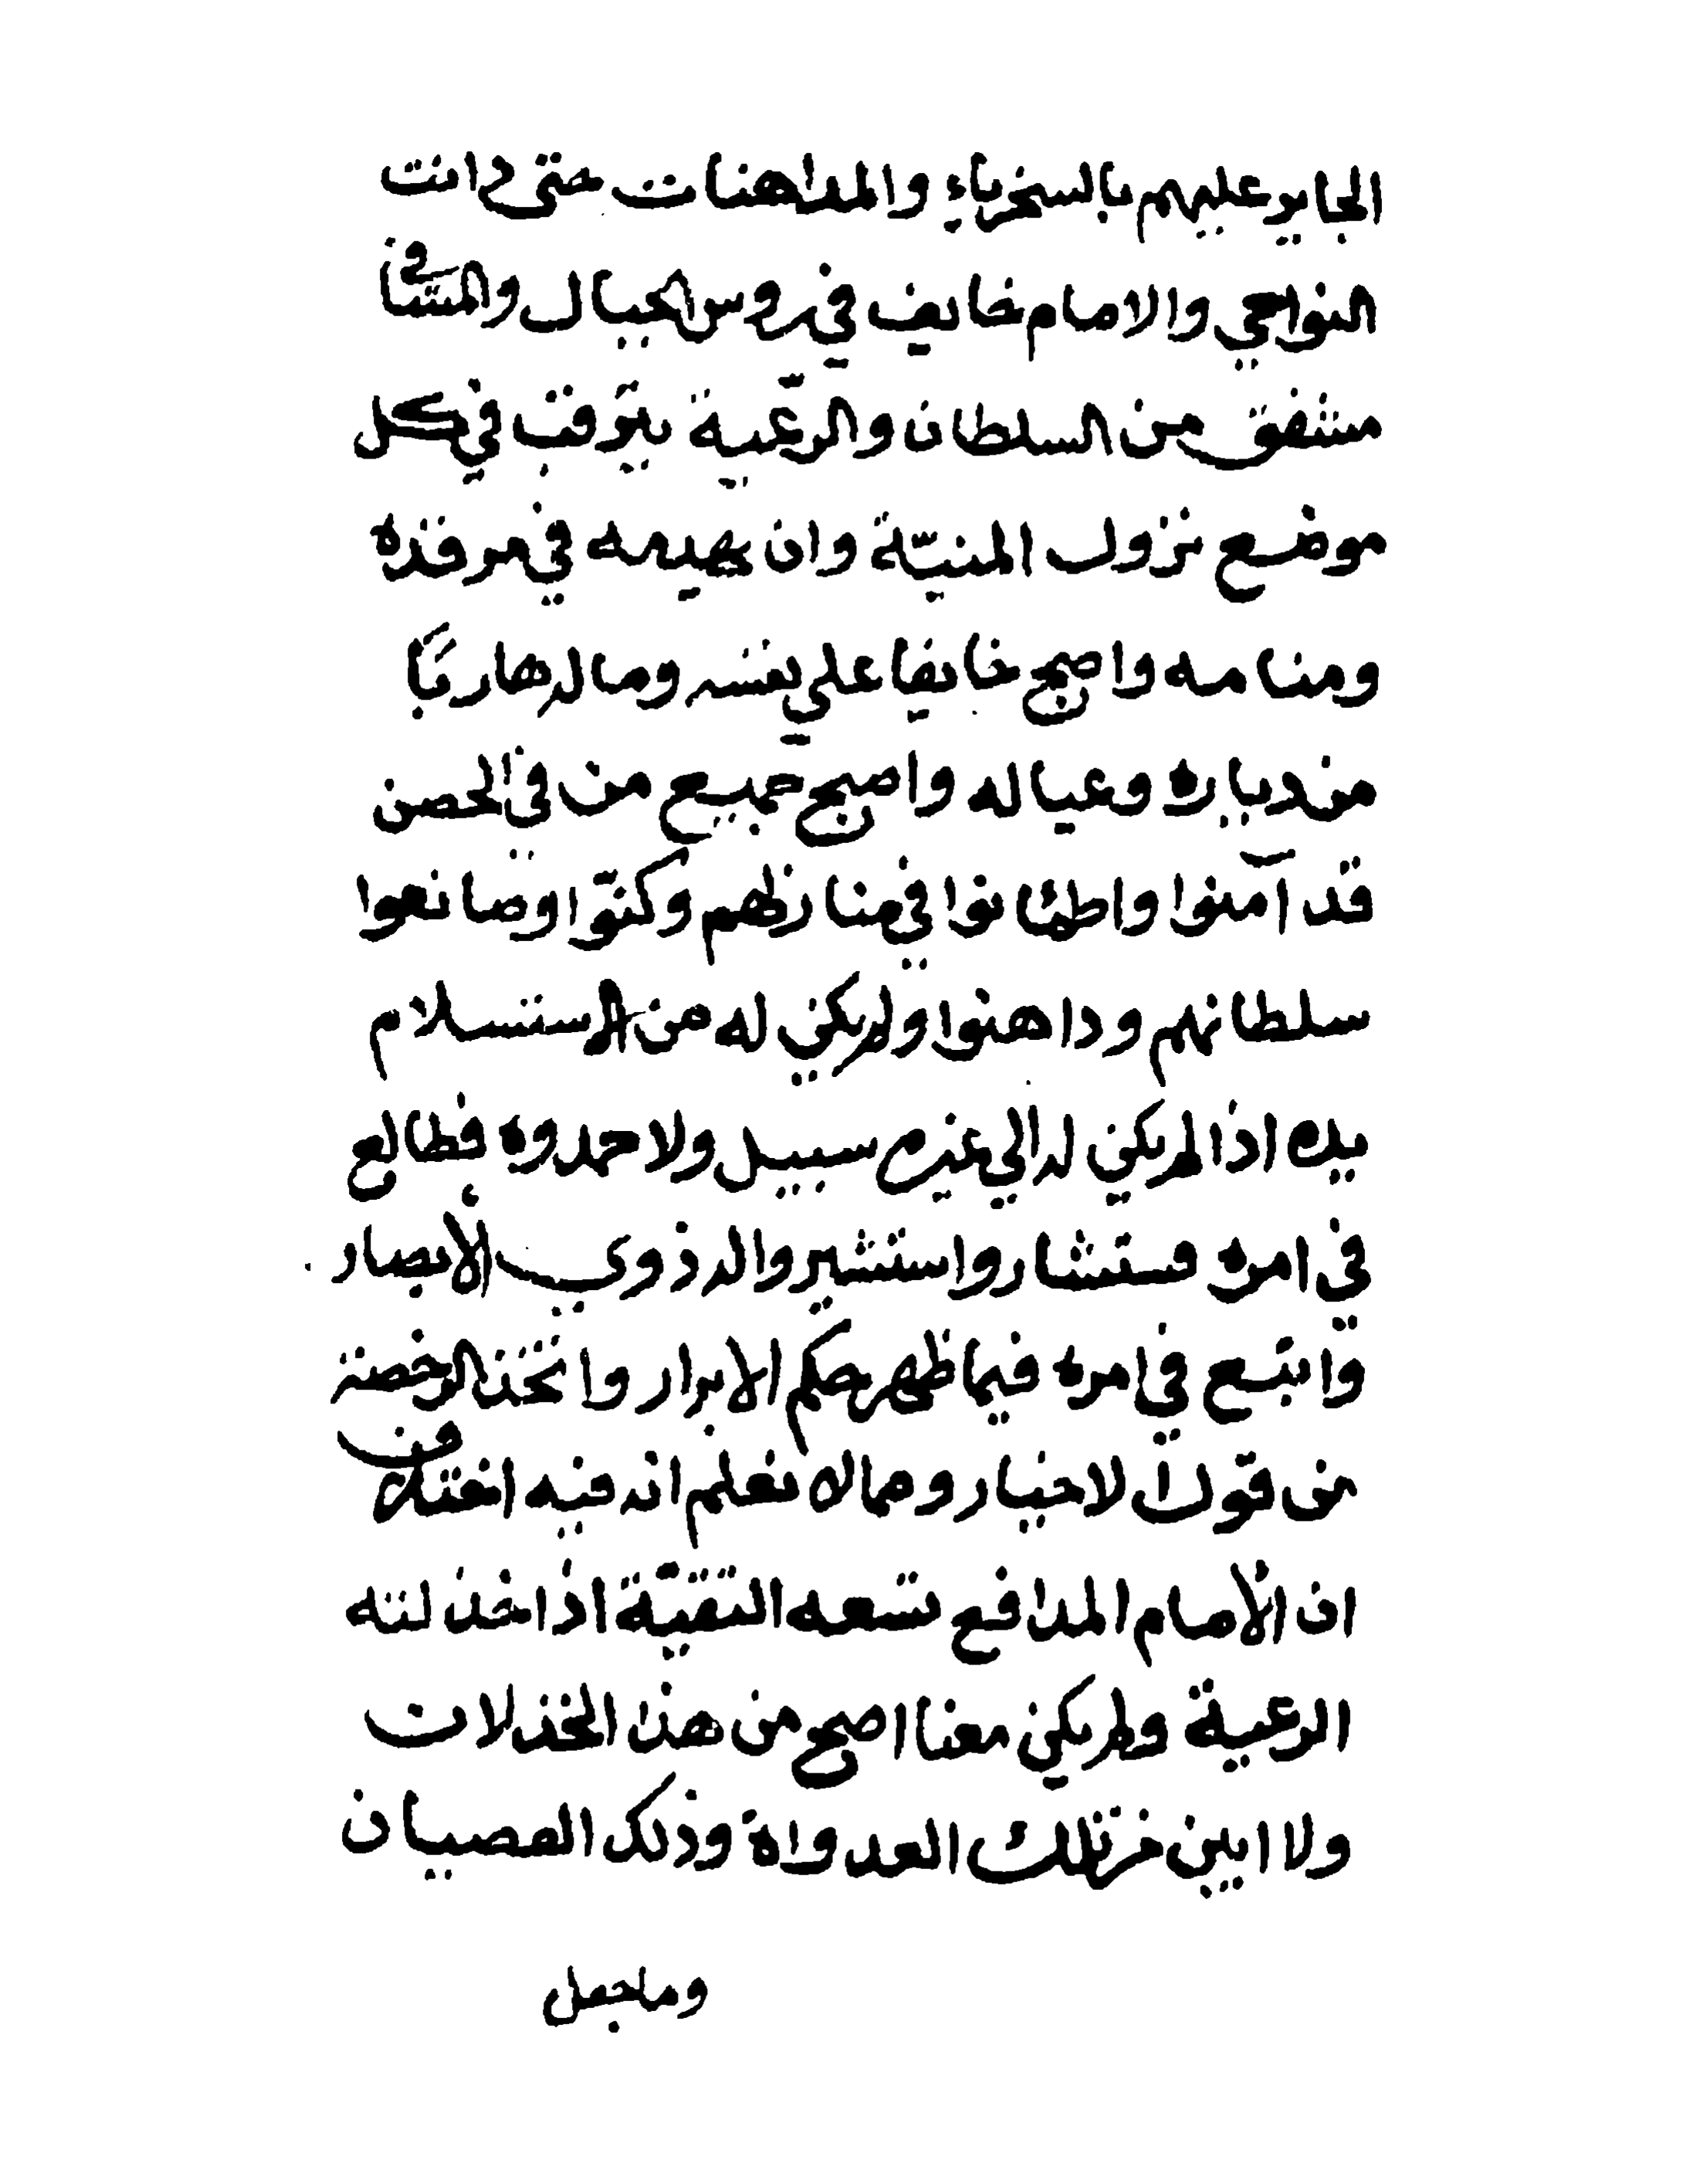 الجاير عليهم بالسخرياء والمداهنات حتى دانت
النواحي والامام خايف في روس الجبال والمشافي
مشفق من السلطان والرعية يترقب في كل
موضع نزول المنيّة وان بهيمه في مرقده
ومنامه واصبح خايفا على نفسه وماله هاربًا
من دياره وعياله واصبح جميع من في الحصن
قد آمنوا واطمانوا في منازلهم وكنوّا وصانعوا
سلطانهم وداهنوا ولم يكن له من الاستسلام
بده اذا لم يكن له الي غيره سبيل ولا حمدوه فطالع
في امره مستشار واستشير والد ذوي الأبصار
واتبع في امره فيما ظهر حكم الابرار واتخذ الرخصة
من قول الاخيار ومما لا نعلم انه فيه اختلاف
ان الأمام المدافع تسعه التقيّة اذا خذلته
الرعية ولم يكن معنا اصح من هذا الخذلان
ولا ابين من تلك العدواة وذلك العصيان
وما جعل